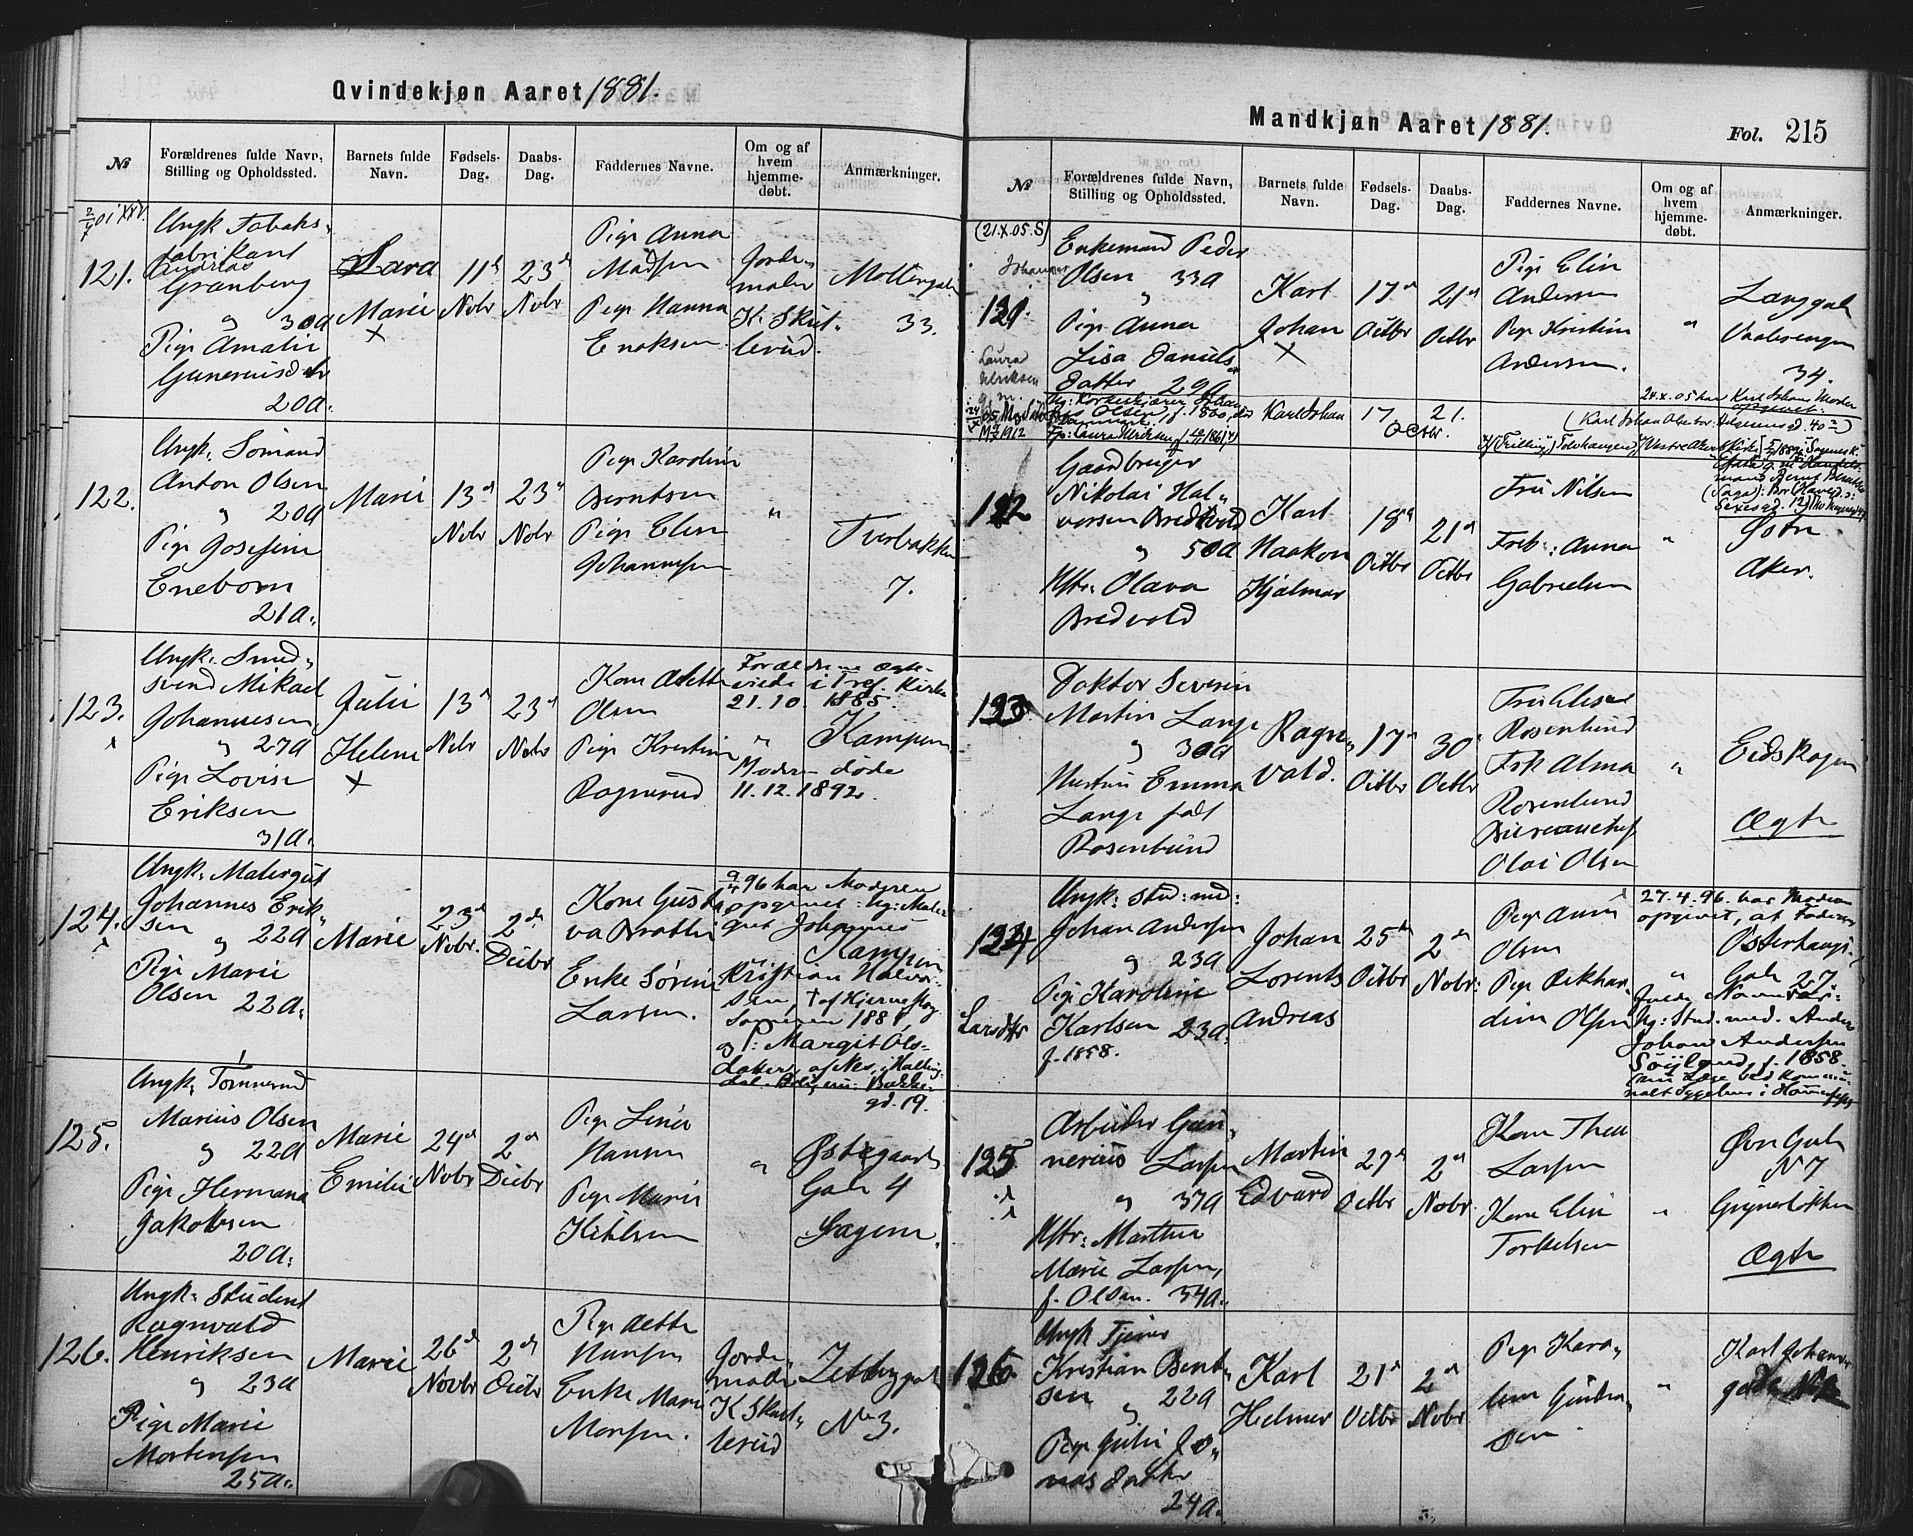 Qvindekjøn Aaret 1881.
№
Forældrenes fulde Navn, Stilling og Opholdssted.
Barnets fulde Navn.
Fødsels-Dag.
Daabs-Dag.
Faddernes Navne.
Om og af hvem hjemme-døbt.
Anmærkninger.
121.
Ungk Tobaks-
fabrikant
Andreas
Granberg
30a
Pige Amalie
20a.
Sara
Marie
×
11te
Nobr
23de
Nobr
Pige Anna
Madsen
Pige Hanna
Enoksen.
Jorde-
moder
K. Skut-
lerud.
33.
122.
Ungk. Sømand
Anton Olsen
20a
Pige Josefine
Eneborn
21a.
Marie
13de
Nobr
23de
Nobr
Pige Karoline
Berntsen
Pige Elen
Johannesen
"
Turbakken
7.
123.
Ungk. Smed-
svend Mikael
Johannesen
27a
Pige Lovise
Eriksen
31a.
Julie
Helene
×
13de
Nobr
23de
Nobr
Kone
Olsen
Pige Kristine
Rognerud
Forældrene ægte-
viede i Tref. Kirke
21.10.1885.
"
Kampen
Moderen døde
11.12.1892.
124.
Ungk. Malergut
Johannes Erik-
sen 22a
Pige Marie
Olsen 22a.
Marie
23de
Nobr.
2den
Decbr
Kone Gusta
va Bratlie
Enke Sørine
Larsen.
9/4 96 har Moderen
opgivet: Ug: Maler
gut Johannes
Kampen
Kristian Halvor-
sen, † af Hjerneslag
Sommeren 1881,
og P: Margit Ols-
datter, af Nes, i Halling-
gd. 19.
125.
Ungk. Tømmermd
Marius Olsen
22a
Pige Hermana
Jakobsen
20a.
Marie
Emilie
24de
Nobr
2den
Decbr
Pige Lina
Hansen
Pige Marie
Kihlsen
"
Østegaards
Gade 4
Sagene.
126.
Ungk. Student
Ragnvald
Henriksen
23a
Pige Marie
Mortensen
25a.
Marie
26de
Novbr
2den
Decbr
Pige Aette
Hansen
Enke Marie
Monsen.
Jorde-
moder
K Skut-
lerud
No 3.
Mandkjøn Aaret 1881.
Fol. 215
№
Forældrenes fulde Navn, Stilling og Opholdssted.
Barnets fulde Navn.
Fødsels-Dag.
Daabs-Dag.
Faddernes Navne.
Om og af hvem hjemme-døbt.
Anmærkninger.
(21.X.05.S)
121.
Enkemand Peder
Olsen 33a
Pige Anna
Lisa Daniels
datter 29a
Karl
Johan
×
17de
Octbr
21de
Octbr
Pige Elin
Andersen
Pige Kristine
Andersen.
"
Langgade
Vaalerengen
34.
Laura
Ulriksen
Karl Johan
17
21.
Octbr.
24.X.05 har Karl Johans Moder
opgivet:
122
Gaardbruger
Nikolai Hal-
vorsen Bredvold
50a
Hstr: Olava
Bredvold
Karl
Haakon
Hjalmar
18de
Octbr
21de
Octbr
Fru Nilsen
Frøk: Anna
Gabrielsen
"
Østre
Aker.
123
Doktor Severin
Martin Lange
30a
Hustru Emma
Lange født
Rosenlund
Ragn-
vald.
17de
Octbr
30te
Octbr
Fru Elise
Rosenlund
Frk Alma
Rosenlund
Bureauchef
Olai Olsen
"
Eidskogen
Ægte
124
Larsdtr
Ungk: stud: med:
Johan Andersen
23a
Pige Karoline
Karlsen 23a.
f. 1858.
Johan
Lorents
Andreas
25de
Octbr
2den
Nobr:
Pige Anna
Olsen
Pige Rikhar-
dine Olsen
27.4.96. har Moderen
opgivet, at Faderens
Østerhaugs-
Gade 27.
fulde Navn var:
Ug: Stud. med. Anders
Johan Andersen
f. 1858.
nu Læge ved Kommu-
nalt Sygehus i Hammerfest
125
Arbeider Gun-
nerius Larsen
37a
Hstr: Marthea
Marie Larsen,
f. Olsen. 34a.
Martin
Edvard
27de
Octbr
2den
Nobr
Kone Thea
Larsen
Kone Elin
Torkelsen
"
Øvre Gade
N 7
Grünerløkken
Ægte
126
Ungk Tjener
Kristian Bent-
sen 22a
Pige Julie Jo-
nas datter
24a.
Karl
Helmer
21de
Octbr
2den
Nobr
Pige Karo-
line Gunder-
sen.
"
Karl Johans-
gade